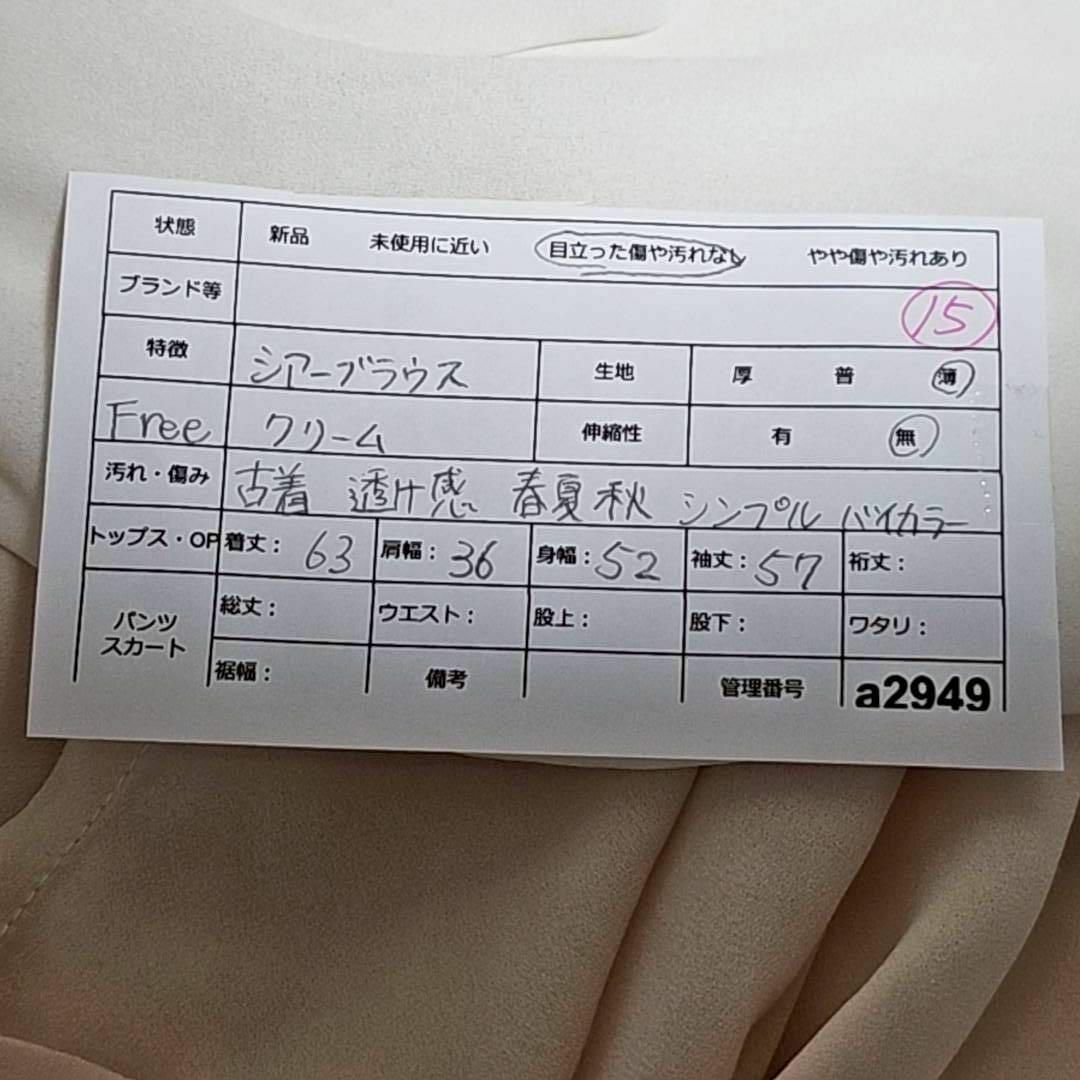 状態 新品 未使用に近い 目立った傷や汚れなし やや傷や汚れあり
ブランド等 15
特徴 シアーブラウス 生地 厚 普 薄
Free クリーム 伸縮性 有 無
汚れ・傷み 古着 透け感 春夏秋 シンプル バイカラー
トップス・OP 着丈: 63 肩幅: 36 身幅: 52 袖丈: 57 裄丈:
パンツ スカート 総丈: ウエスト: 股上: 股下: ワタリ:
裾幅: 備考 管理番号 a2949